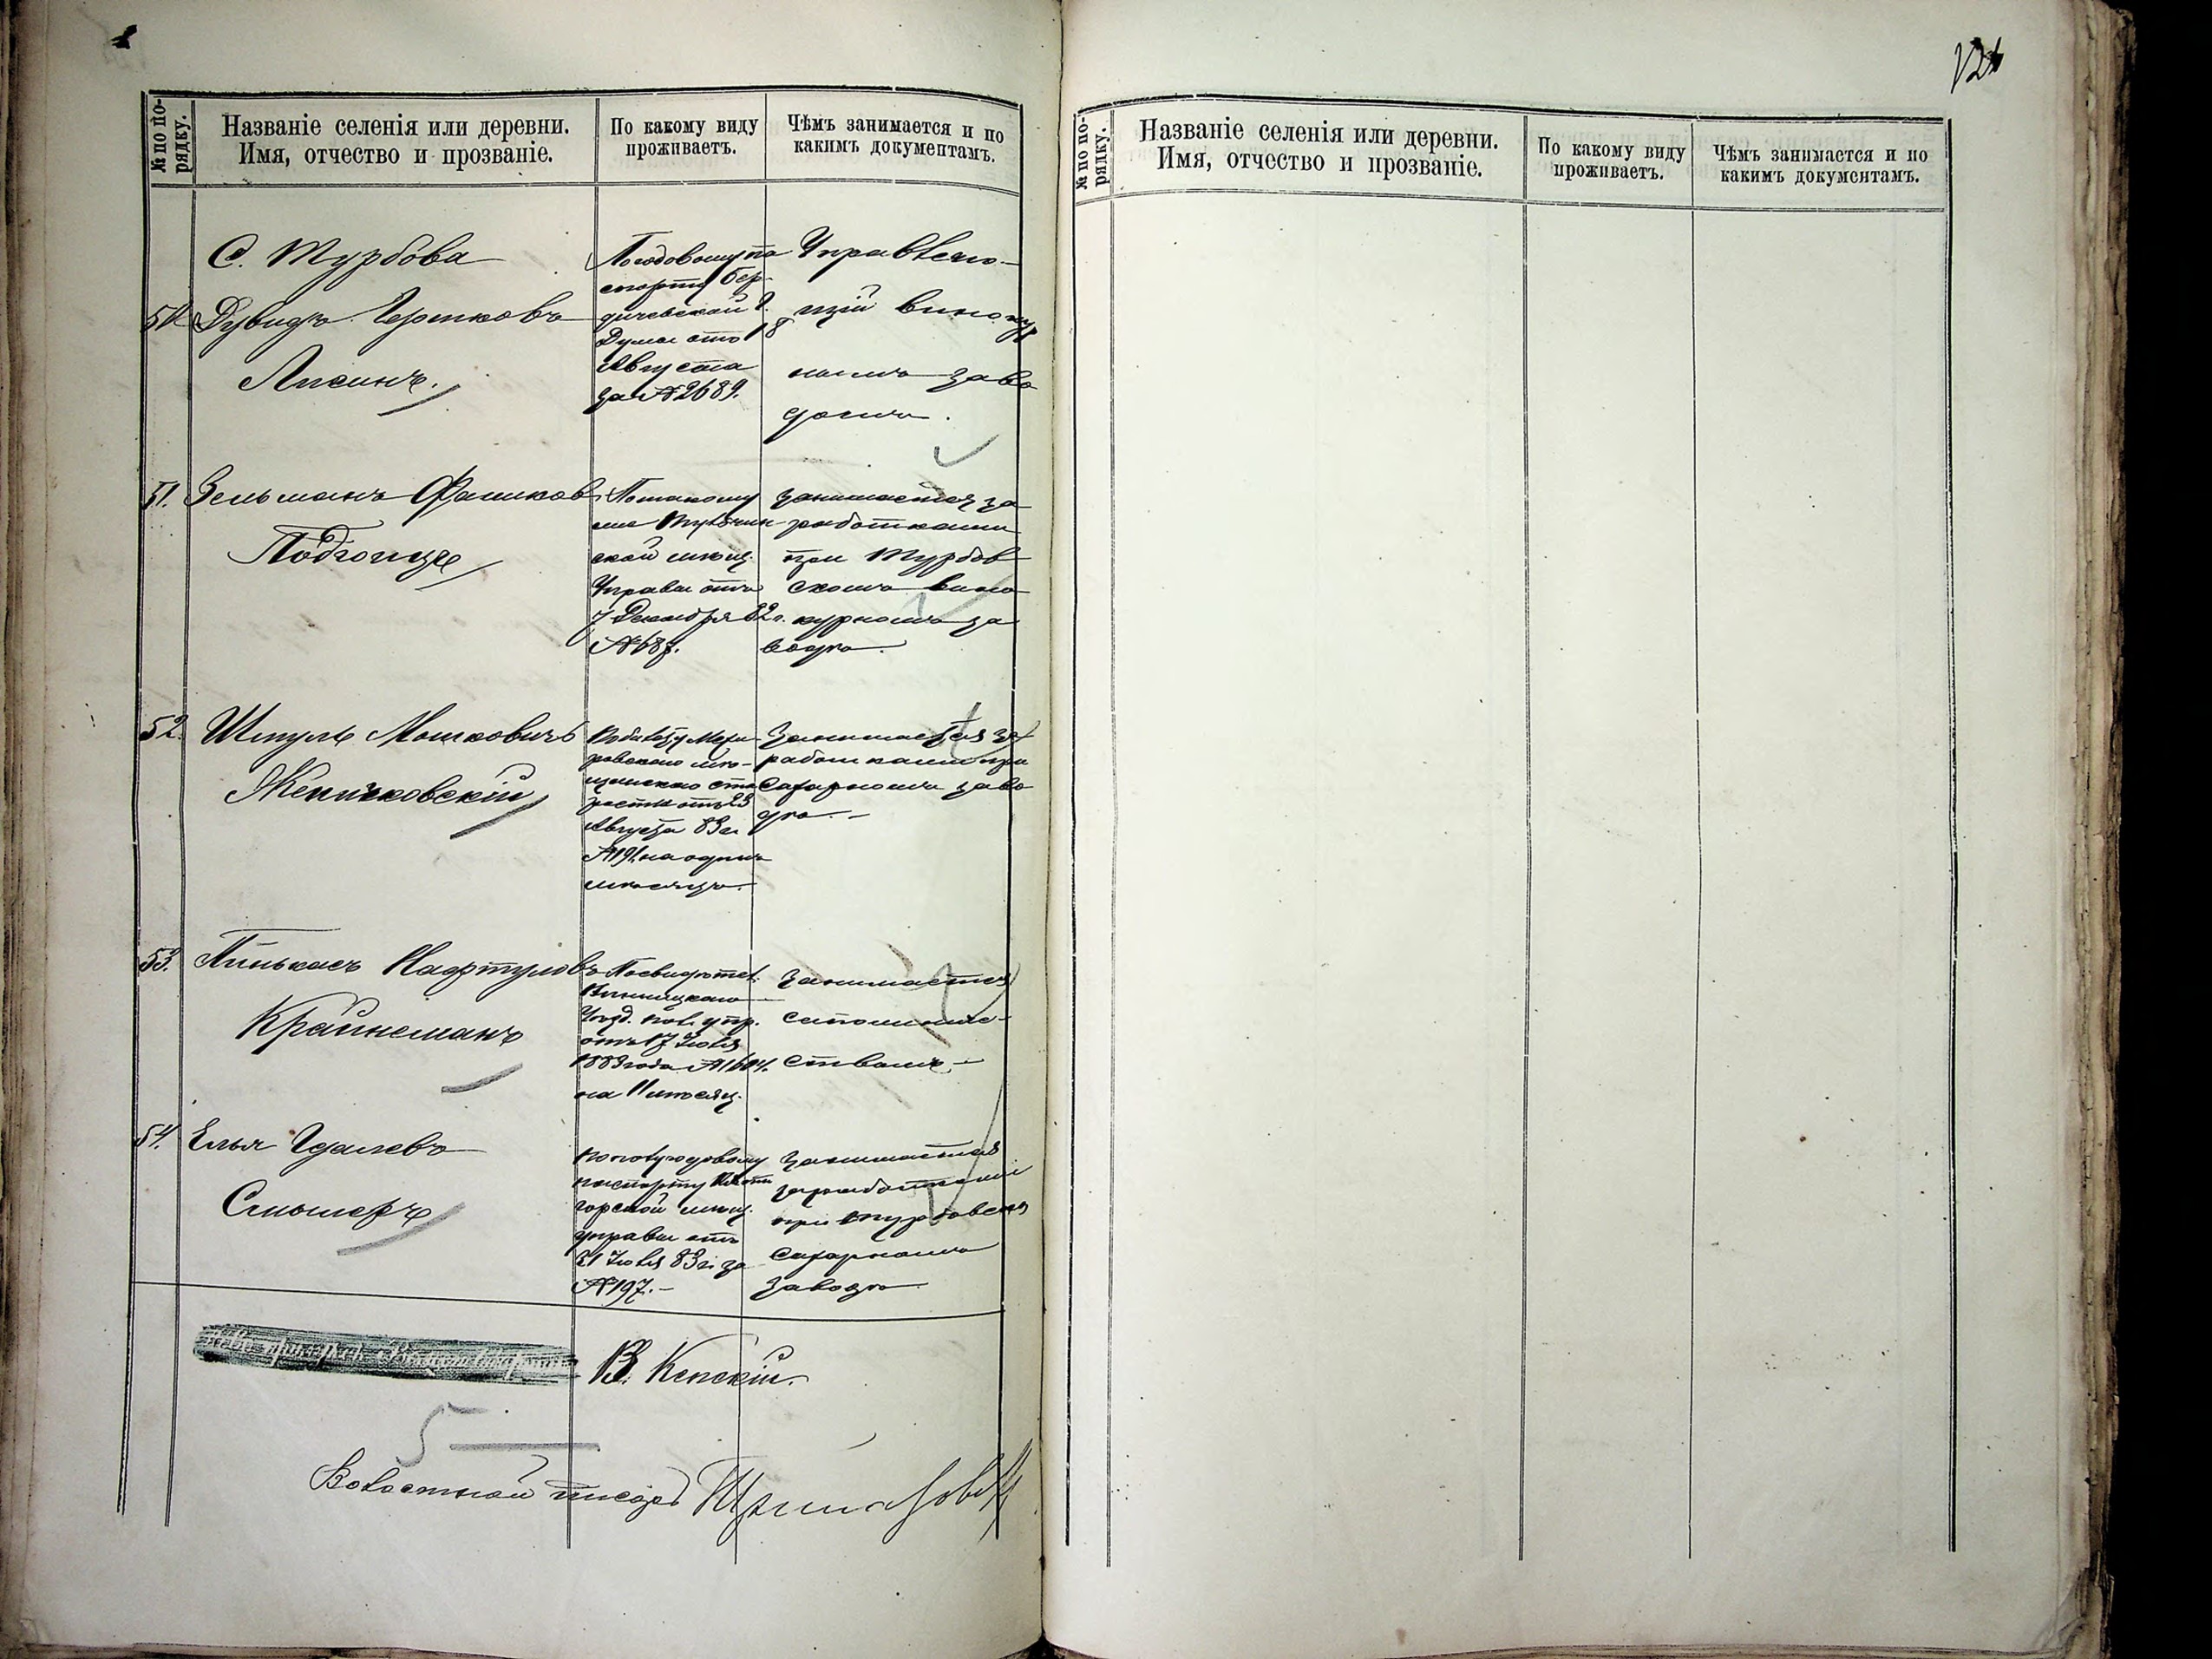 124
№ по по-
рядку.
Названіе селенія или деревни.
Имя, отчество и прозваніе.
По какому виду
проживаетъ.
Чѣмъ занимается и по
какимъ документамъ.
С. Турбова
50.
Дувидъ
Погодовому па
спорту Бер-
дичевской Г.
Думы отъ 18
Августа
за № 2689.
Управляю-
щій виноку
нымъ заво
домъ.
51.
Зельманъ
По такому
же
ской мѣщ.
Управы отъ
7 Декабря 82 г.
№ 687.
Занимается за
работками
при Турбов
скомъ вино
курномъ за
водѣ.
52.
Шмуль Мошковичъ
мѣ-
щанскаго ста
росты отъ 23
Августа 83 г.
№ 191 на одинъ
мѣсяцъ.
Занимается за
работками при
Сахарномъ заво
дѣ.-
53.
Пинькасъ Нафтуловъ
Крайнеманъ
По свидѣтел.
Винницкаго
Уѣзд. пол. упр.
отъ 17 Іюля
1883 года №
на 11 мѣсяц.
Занимается
54.
Елья Гдалевъ
По полугодовому
паспорту
горской мѣщ.
управы отъ
21 Іюля 83 г. за
№ 197.-
Занимается
заработками
при Турбовск
Сахарномъ
заводѣ.
В.
5
Волостной писарь
№ по по-
рядку.
Названіе селенія или деревни.
Имя, отчество и прозваніе.
По какому виду
проживаетъ.
Чѣмъ занимается и по
какимъ документамъ.